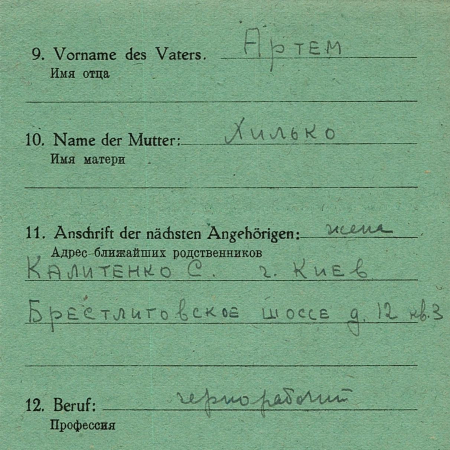 9. Vorname des Vaters. Артем
Имя отца
10. Name der Mutter: Хилько
Имя матери
11. Anschrift der nächsten Angehörigen: жена
Адрес ближайших родственников
Калитенко С. г. Киев
Брестлитовское шоссе д. 12 кв. 3
12. Beruf: чернорабочий
Профессия